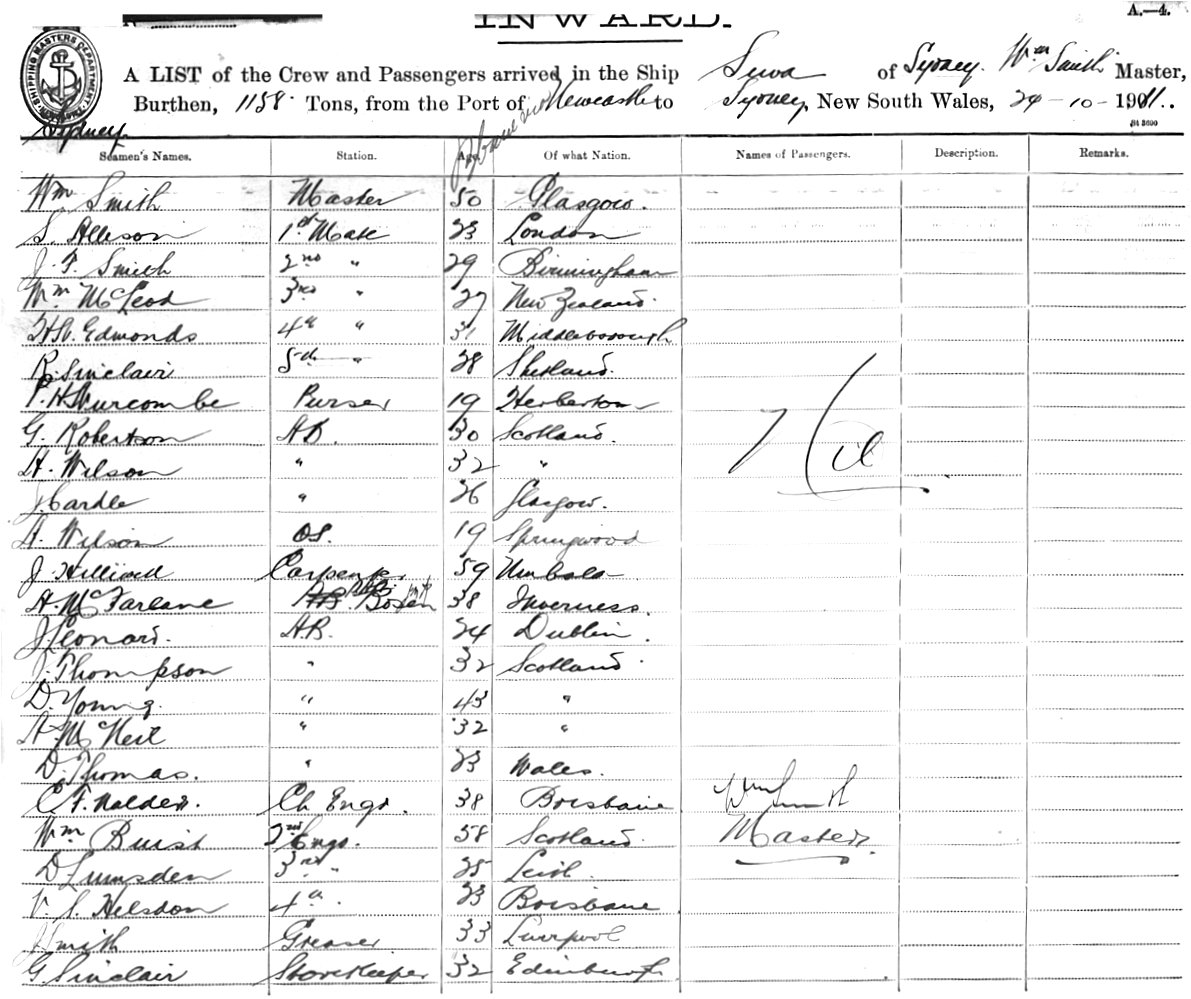 INWARD.
A.—4.
SHIPPING MASTERS DEPARTMENT
A LIST of the Crew and Passengers arrived in the Ship Suva of Sydney. Wm Smith Master,
Burthen, 1158 Tons, from the Port of Newcastle to Sydney, New South Wales, 24-10-1911.
Sydney
Seamen's Names. Station. Age Of what Nation. Names of Passengers. Description. Remarks.
Wm Smith Master 50 Glasgow.
S. Allison 1st Mate 23 London
J. F. Smith 2nd " 29 Birmingham
Wm McLeod 3rd " 27 New Zealand.
Edmonds 4th " 31 Middleborough
R. Sinclair 5th " 28 Shetland.
P. H. Purser 19 Herberton
G. Robertson AB. 30 Scotland.
H. Wilson " 32 "
Nil
J. Cardle " 26 Glasgow.
A. Wilson OS. 19 Springwood
J. Carpentr. 59
A. McFarlane Bosen 38 Inverness.
J. Leonard. AB. 24 Dublin.
J. Thompson " 32 Scotland.
D. Young. " 43 "
A. McNeil " 32 "
D. Thomas. " 23 Wales.
C. F. Ch Engr. 38 Brisbane Wm Smith
Wm Buist 2nd Engr. 58 Scotland. Master.
D Lumsden 3rd " 25 Leith.
V. S. Helsdon 4th 23 Brisbane
J Smith Greaser 33 Liverpool
G Sinclair Storekeeper 32 Edinburgh